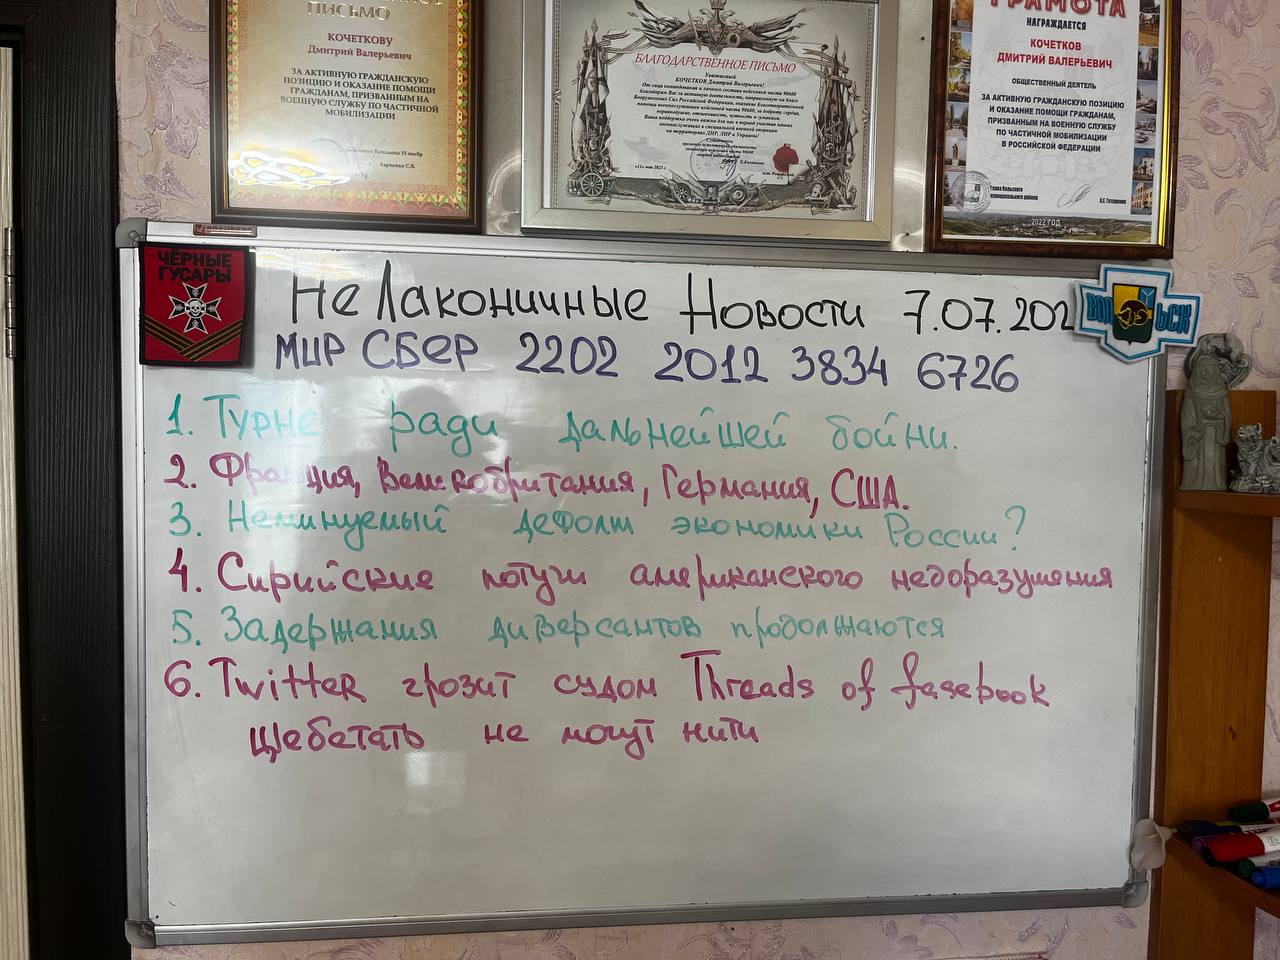 ПИСЬМО
КОЧЕТКОВУ
Дмитрий Валерьевич
ЗА АКТИВНУЮ ГРАЖДАНСКУЮ
ПОЗИЦИЮ И ОКАЗАНИЕ ПОМОЩИ
ГРАЖДАНАМ, ПРИЗВАННЫМ НА
ВОЕННУЮ СЛУЖБУ ПО ЧАСТИЧНОЙ
МОБИЛИЗАЦИИ
Харченко С.В.
БЛАГОДАРСТВЕННОЕ ПИСЬМО
Уважаемый
КОЧЕТКОВ Дмитрий Валерьевич!
От лица командования и личного состава войсковой части 90600
на территориях ДНР, ЛНР и Украины!
ГРАМОТА
НАГРАЖДАЕТСЯ
КОЧЕТКОВ
ДМИТРИЙ ВАЛЕРЬЕВИЧ
ОБЩЕСТВЕННЫЙ ДЕЯТЕЛЬ
ЗА АКТИВНУЮ ГРАЖДАНСКУЮ ПОЗИЦИЮ
И ОКАЗАНИЕ ПОМОЩИ ГРАЖДАНАМ,
ПРИЗВАННЫМ НА ВОЕННУЮ СЛУЖБУ
ПО ЧАСТИЧНОЙ МОБИЛИЗАЦИИ
В РОССИЙСКОЙ ФЕДЕРАЦИИ
Глава Вольского
муниципального района
2022 ГОД
ЧЕРНЫЕ
ГУСАРЫ
Не Лаконичные Новости 7.07.202
ВОЛЬСК
МИР СБЕР 2202 2012 3834 6726
1. Турне ради дальнейшей бойни.
2. Франция, Великобритания, Германия, США.
3. Неминуемый дефолт экономики России?
4. Сирийские потуги американского недоразумения
5. Задержания диверсантов продолжаются
6. Twitter грозит судом Threads of fasebook
щебетать не могут нити